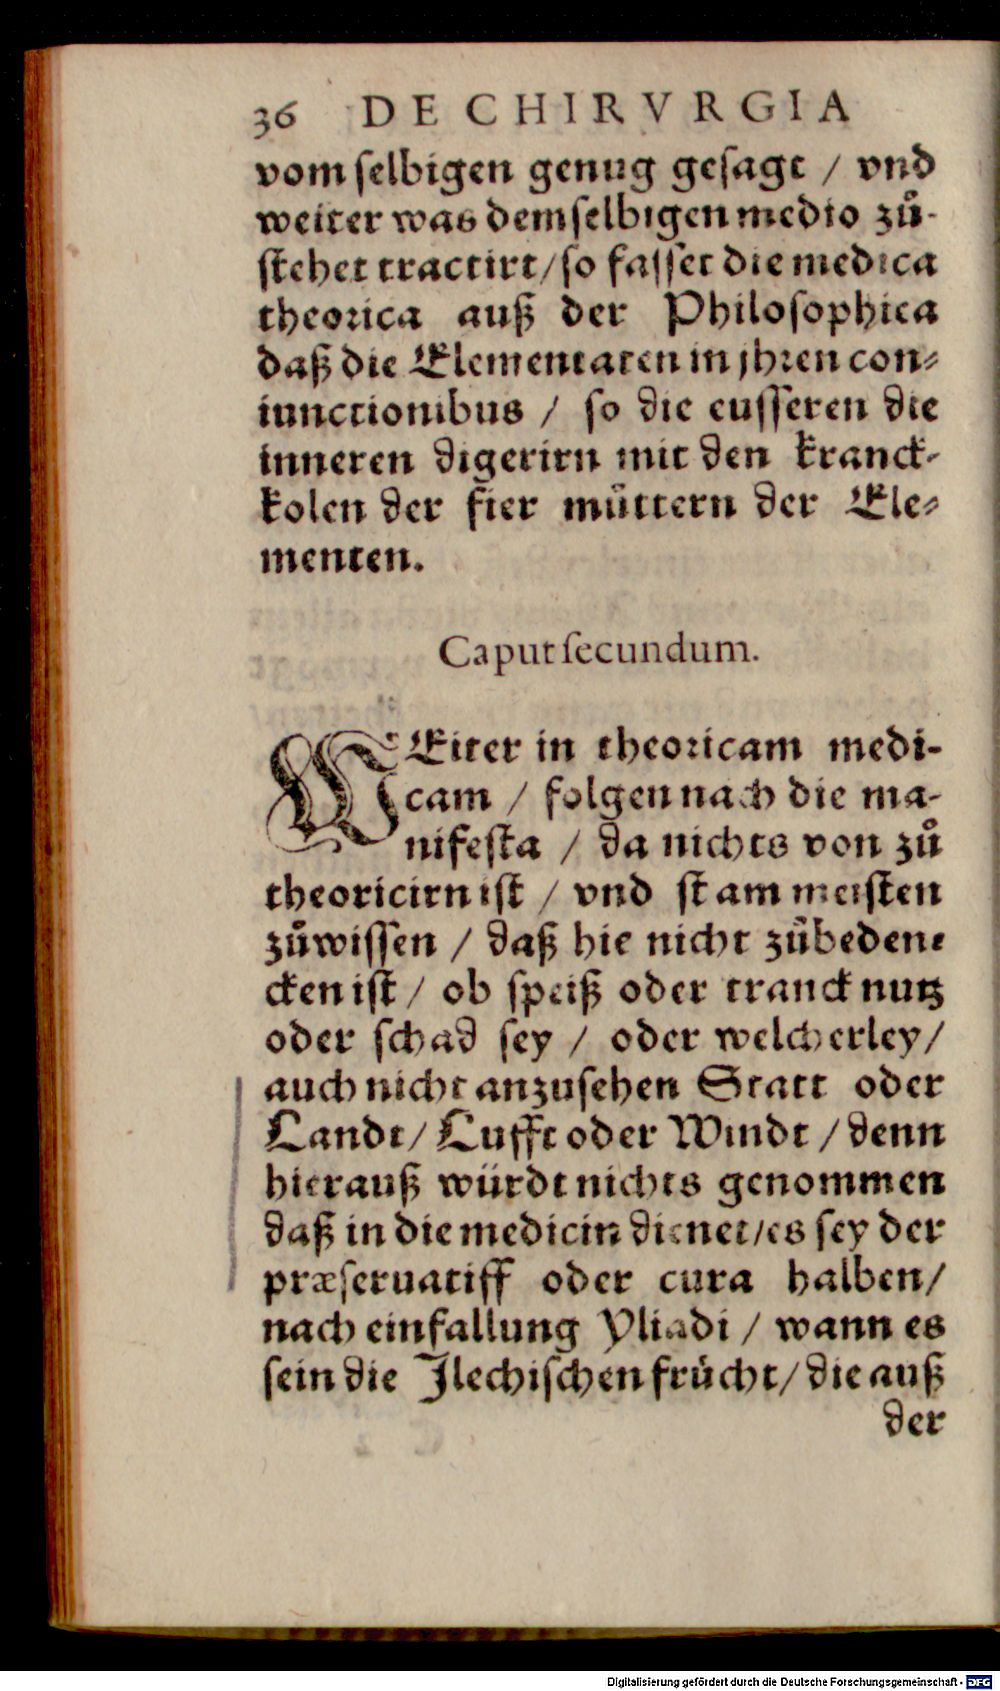 36 DE CHIRVRGIA
vom selbigen genug gesagt / vnd
weiter was demselbigen medio zů-
stehet tractirt/so fasset die medica
theorica auß der Philosophica
daß die Elementaten in jhren con-
iunctionibus / so die eusseren die
inneren digerirn mit den kranck-
kolen der fier můttern der Ele-
menten.
Caput secundum.
WEiter in theoricam medi-
cam / folgen nach die ma-
nifesta / da nichts von zů
theoricirn ist / vnd st am meisten
zůwissen / daß hie nicht zůbeden-
cken ist / ob speiß oder tranck nutz
oder schad sey / oder welcherley/
auch nicht anzusehen Statt oder
Landt/ Lufft oder Windt / denn
hierauß würdt nichts genommen
daß in die medicin dienet/es sey der
præseruatiff oder cura halben/
nach einfallung Yliadi / wann es
sein die Jlechischen frücht/ die auß
der
Digitalisierung gefördert durch die Deutsche Forschungsgemeinschaft - DFG